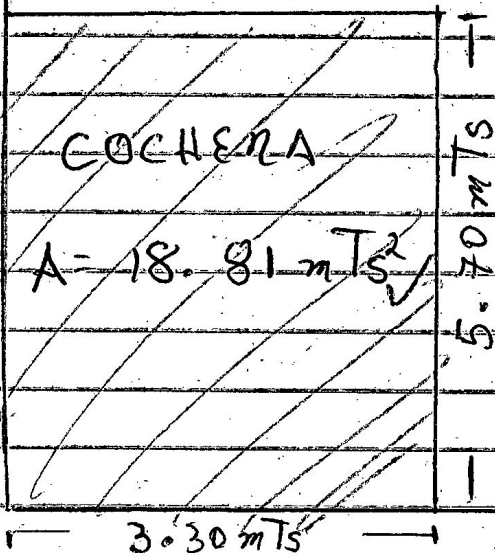 COCHERA
A= 18.81 mTs²✓
5.70 mTs
3.30 mTs